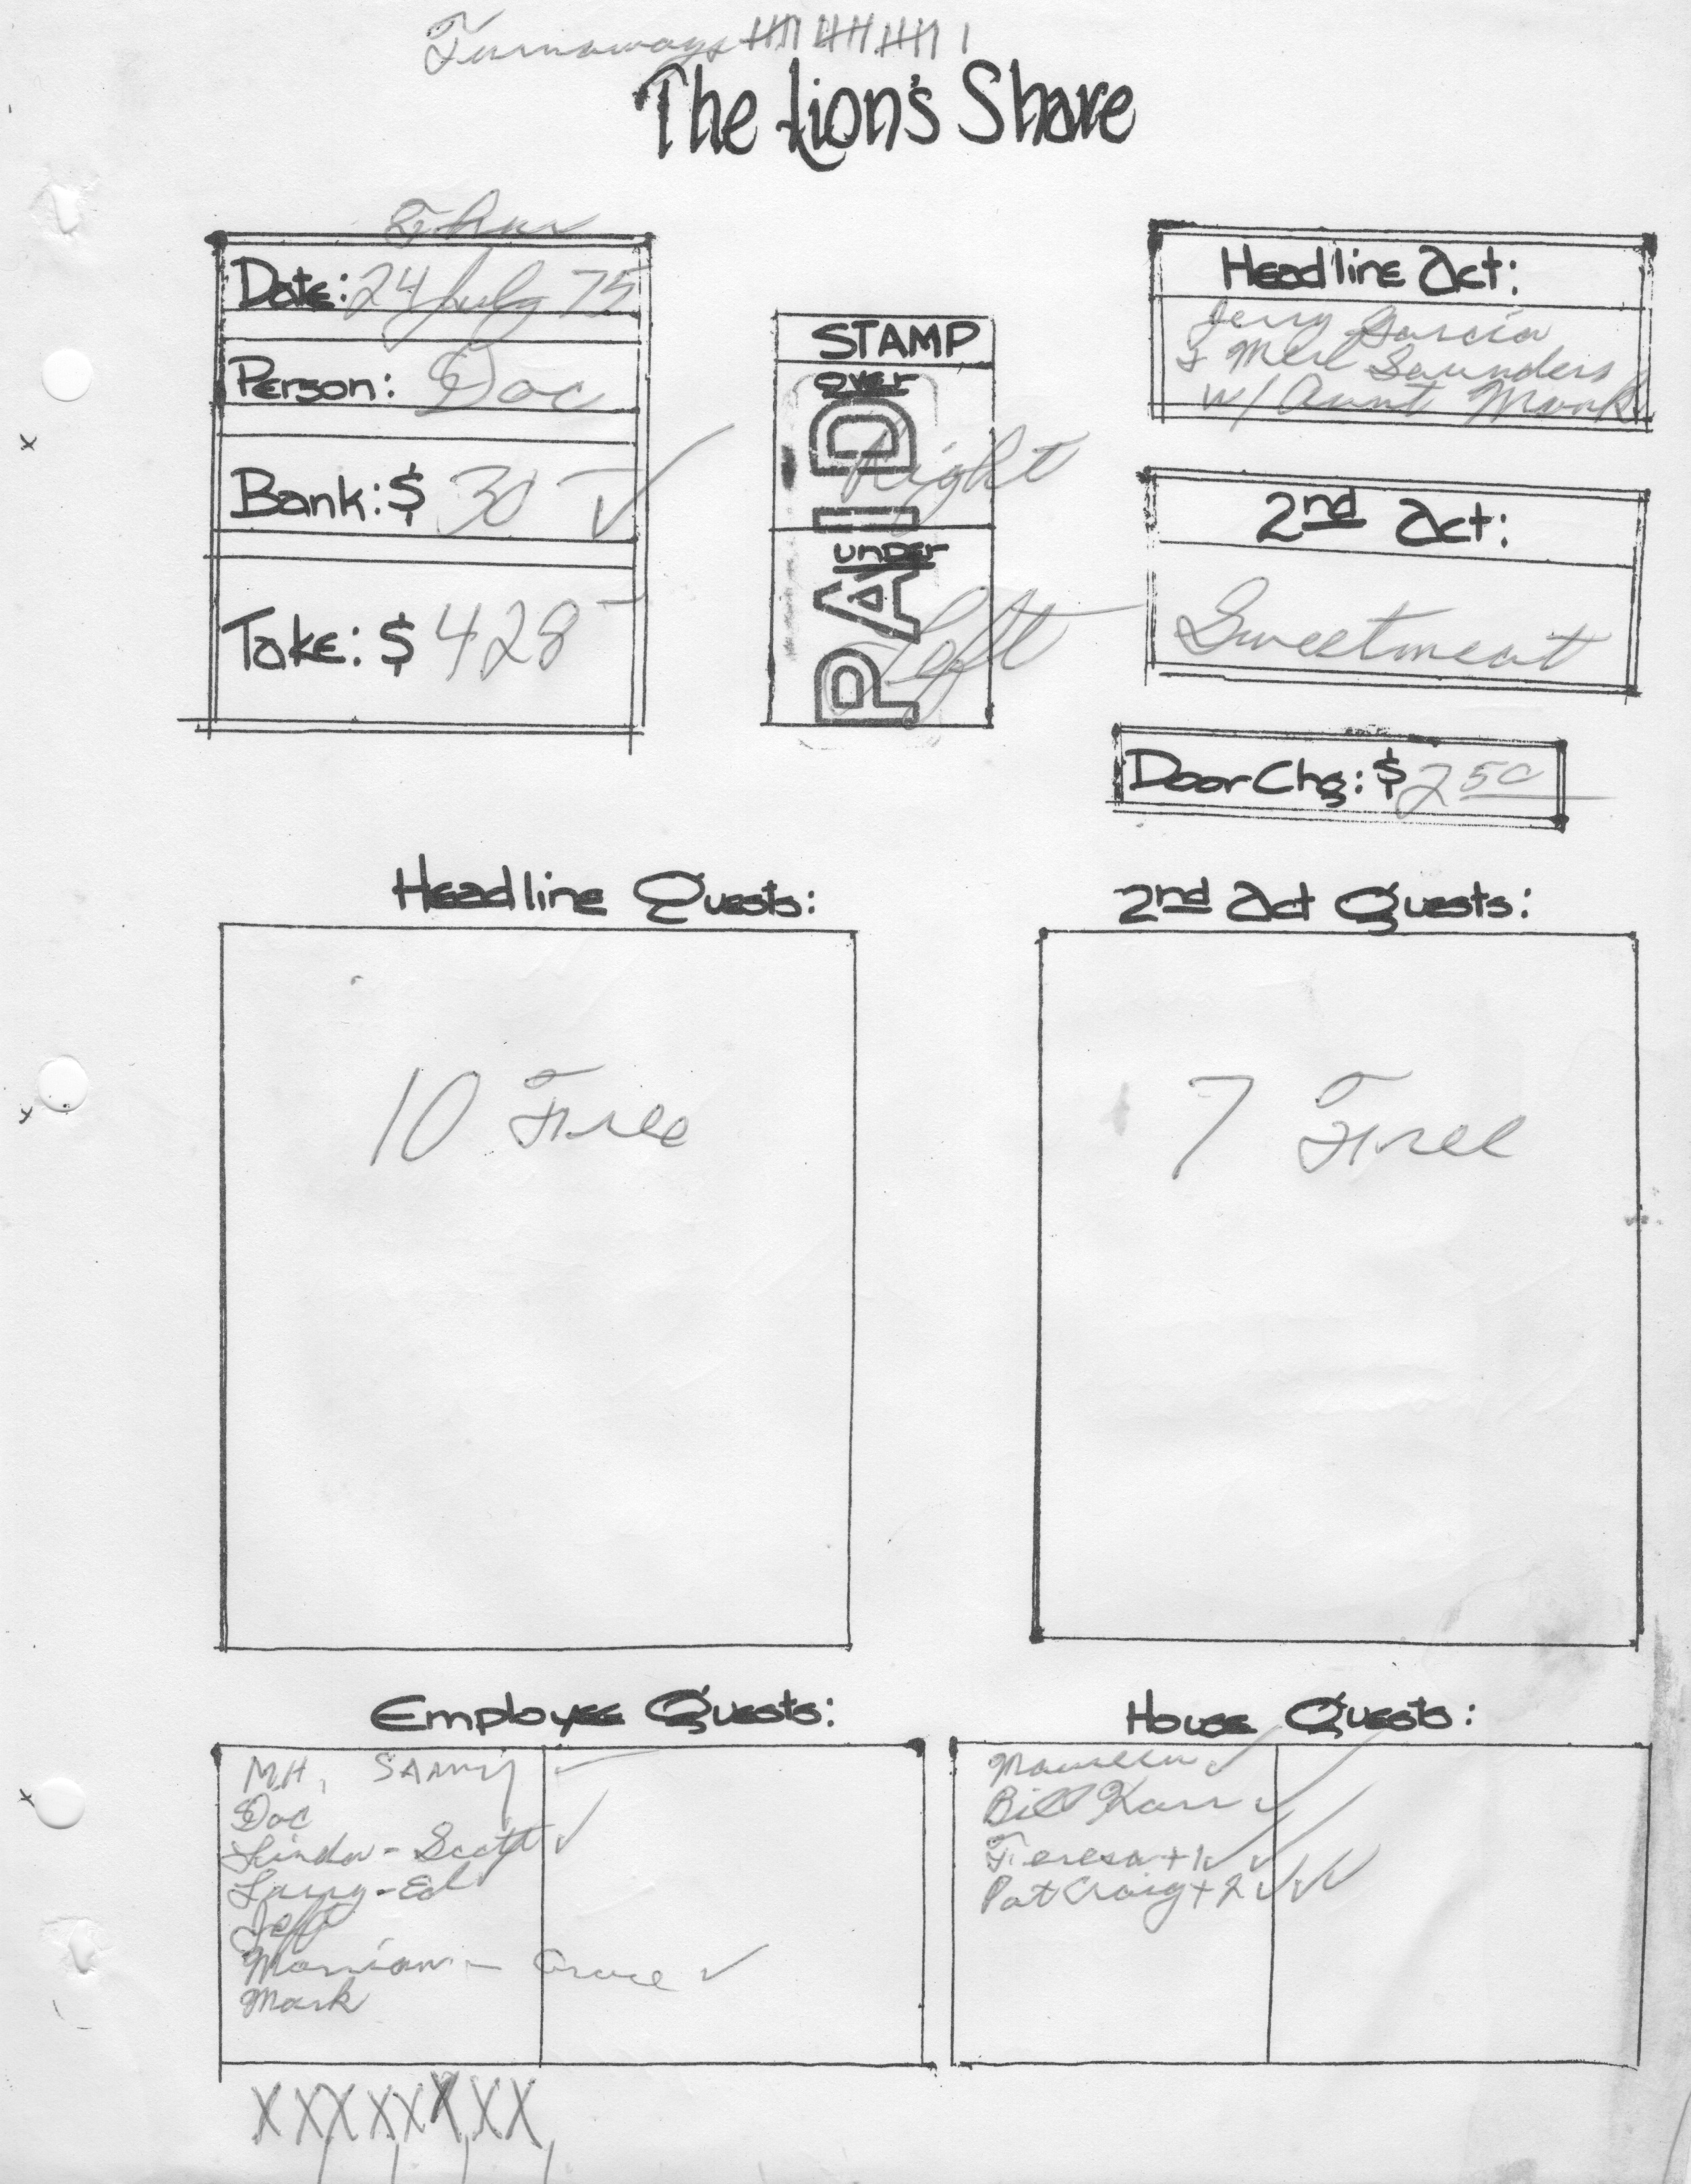 Turnaways 𝍸 𝍸 𝍸 |
The Lion's Share
Thur
Date: 24 July 75
Person: Doc
Bank: $ 30 ✓
Take: $ 428
STAMP
over
Right
under
Left
PAID
Headline Act:
Jerry Garcia
& Merl Saunders
w/ Aunt Monk
2nd Act:
Sweetmeat
Door Chg: $ 2 50
Headline Guests:
10 Free
2nd Act Guests:
7 Free
Employee Guests:
M.H, SAMMY ✓
Doc
Linda - Scott ✓
Larry - Ed
Jeff
Marrian - Grace ✓
Mark
XXXXXXXX
House Guests:
Maureen ✓
Bill Karr ✓
Teresa +1 ✓ ✓
Pat Craig +2 ✓ ✓ ✓